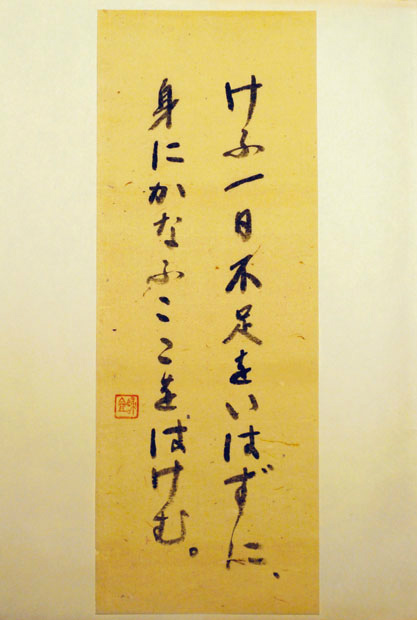 けふ一日不足をいはずに、
身にかなふことをはげむ。